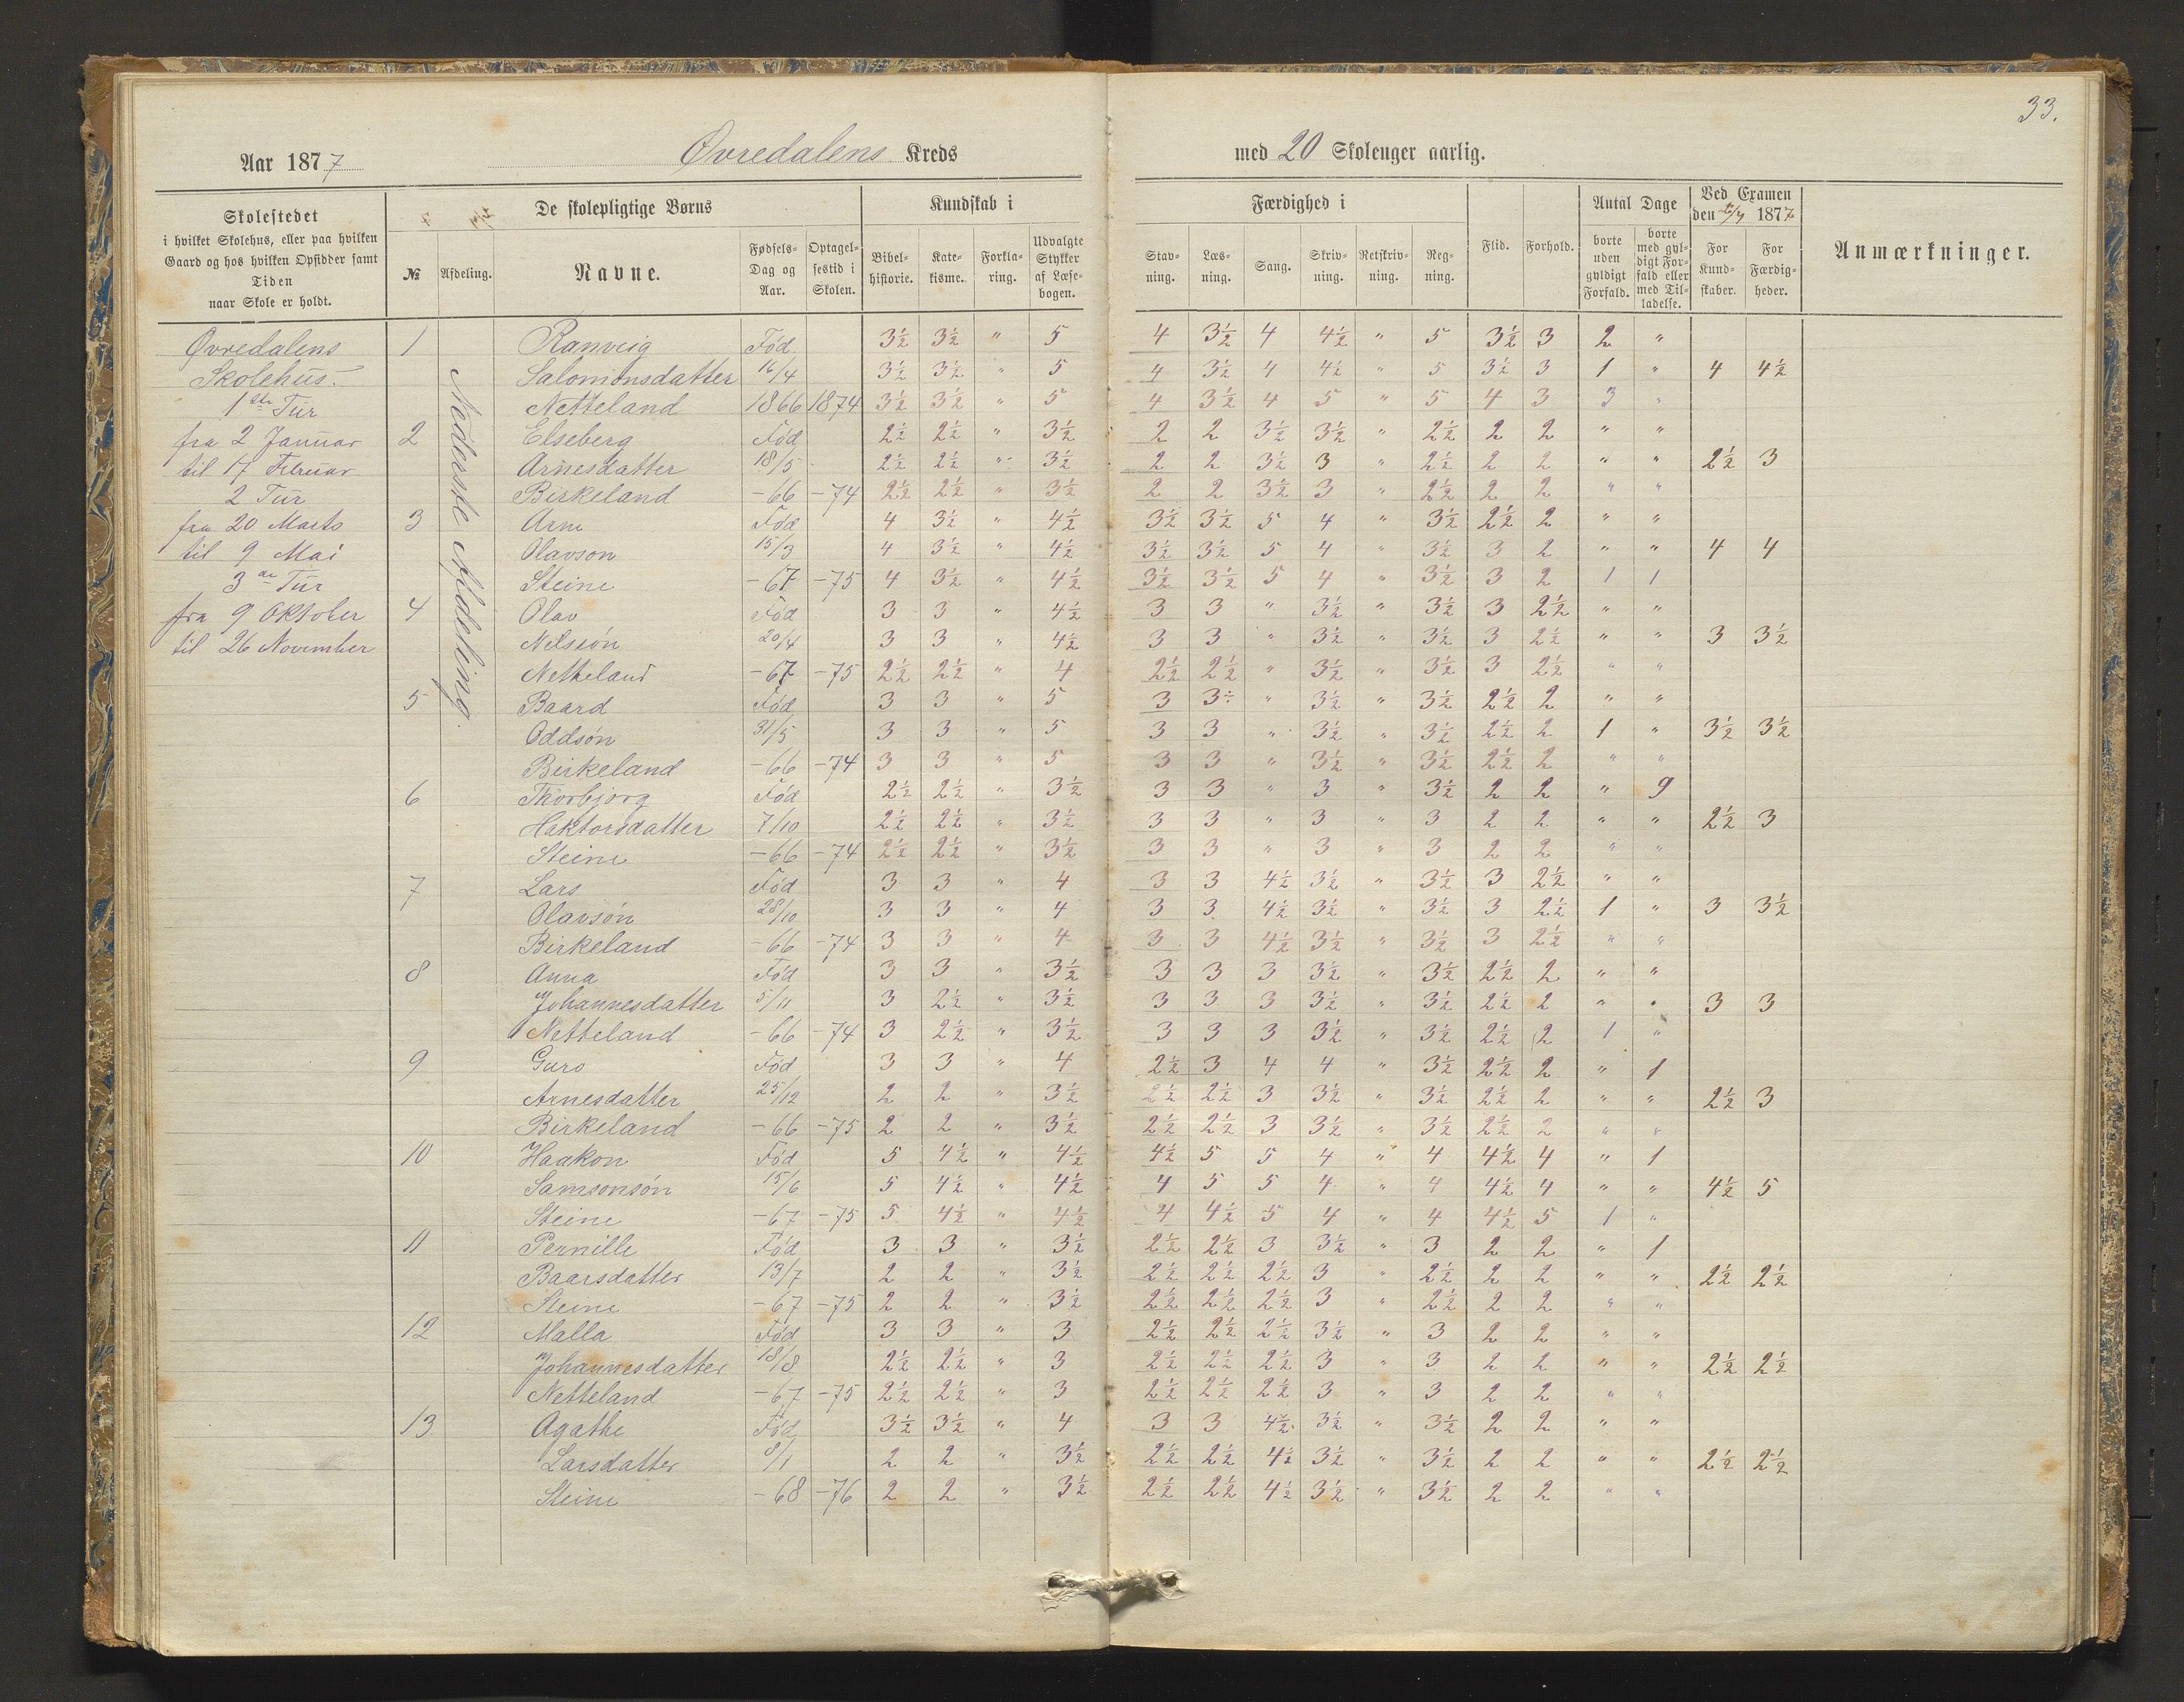 33.
Aar 1877 Øvredalens Kreds med 20 Skoleuger aarlig.
Skolestedet i hvilket Skolehus, eller paa hvilken Gaard og hos hvilken Opsidder samt Tiden naar Skole er holdt.
De skolepligtige Børns
№ Afdeling. Navne. Fødsels-Dag og Aar. Optagel-sestid i Skolen.
Kundskab i
Bibel-historie. Kate-kisme. Forkla-ring. Udvalgte Stykker af Læse-bogen.
Færdighed i
Stav-ning. Læs-ning. Sang. Skriv-ning. Retskriv-ning. Reg-ning.
Flid. Forhold.
Antal Dage
borte uden gyldigt Forfald. borte med gyl-digt For-fald eller med Til-ladelse.
Ved Examen den 1877
For Kund-skaber. For Færdig-heder.
Anmærkninger.
Nederste Afdeling.
Øvredalens 1 Ranveig Fød 3½ 3½ " 5 4 3½ 4 4½ " 5 3½ 3 2 "
Skolehus. Salomonsdatter 16/4 3½ 3½ " 5 4 3½ 4 4½ " 5 3½ 3 1 " 4 4½
1ste Tur Netteland 1866 1874 3½ 3½ " 5 4 3½ 4 5 " 5 4 3 3 "
fra 2 Januar 2 Elseberg Fød 2½ 2½ " 3½ 2 2 3½ 3½ " 2½ 2 2 " "
til 17 Februar Arnesdatter 18/5 2½ 2½ " 3½ 2 2 3½ 3 " 2½ 2 2 " " 2½ 3
2 Tur Birkeland -66 -74 2½ 2½ " 3½ 2 2 3½ 3 " 2½ 2 2 " "
fra 20 Marts 3 Arne Fød 4 3½ " 4½ 3½ 3½ 5 4 " 3½ 2½ 2 " "
til 9 Mai Olavson 15/3 4 3½ " 4½ 3½ 3½ 5 4 " 3½ 3 2 " " 4 4
3die Tur Steine -67 -75 4 3½ " 4½ 3½ 3½ 5 4 " 3½ 3 2 1 1
fra 9 Oktober 4 Olav Fød 3 3 " 4½ 3 3 " 3½ " 3½ 3 2½ " "
til 26 November Nelssøn 20/4 3 3 " 4½ 3 3 " 3½ " 3½ 3 2½ " " 3 3½
Netteland -67 -75 2½ 2½ " 4 2½ 2½ " 3½ " 3½ 3 2½ " "
5 Baard Fød 3 3 " 5 3 3÷ " 3½ " 3½ 2½ 2 " "
Oddsøn 31/5 3 3 " 5 3 3 " 3½ " 3½ 2½ 2 1 " 3½ 3½
Birkeland -66 -74 3 3 " 5 3 3 " 3½ " 3½ 2½ 2 " "
6 Thorbjørg Fød 2½ 2½ " 3½ 3 3 " 3 " 3½ 2 2 " 9
Haktorsdatter 7/10 2½ 2½ " 3½ 3 3 " 3 " 3 2 2 " " 2½ 3
Steine -66 -74 2½ 2½ " 3½ 3 3 " 3 " 3 2 2 " "
7 Lars Fød 3 3 " 4 3 3 4½ 3½ " 3½ 3 2½ " "
Olavsøn 28/10 3 3 " 4 3 3 4½ 3½ " 3½ 3 2½ 1 " 3 3½
Birkeland -66 -74 3 3 " 4 3 3 4½ 3½ " 3½ 3 2½ " "
8 Anna Fød 3 3 " 3½ 3 3 3 3½ " 3½ 2½ 2 " "
Johannesdatter 5/11 3 2½ " 3½ 3 3 3 3½ " 3½ 2½ 2 " " 3 3
Netteland -66 -74 3 2½ " 3½ 3 3 3 3½ " 3½ 2½ 2 1 "
9 Guro Fød 3 3 " 4 2½ 3 4 4 " 3½ 2½ 2 " 1
Arnesdatter 25/12 2 2 " 3½ 2½ 2½ 3 3½ " 3½ 2½ 2 " " 2½ 3
Birkeland -66 -75 2 2 " 3½ 2½ 2½ 3 3½ " 3½ 2½ 2 " "
10 Haakon Fød 5 4½ " 4½ 4½ 5 5 4 " 4 4½ 4 " 1
Samsonsøn 15/6 5 4½ " 4½ 4 5 5 4 " 4 4½ 4 " " 4½ 5
Steine -67 -75 5 4½ " 4½ 4 4½ 5 4 " 4 4½ 5 1 "
11 Pernille Fød 3 3 " 3½ 2½ 2½ 3 3½ " 3 2 2 " 1
Baarsdatter 13/7 2 2 " 3½ 2½ 2½ 2½ 3 " 2½ 2 2 " " 2½ 2½
Steine -67 -75 2 2 " 3½ 2½ 2½ 2½ 3 " 2½ 2 2 " "
12 Malla Fød 3 3 " 3 2½ 2½ 2½ 3½ " 3 2 2 " "
Johannesdatter 18/8 2½ 2½ " 3 2½ 2½ 2½ 3 " 3 2 2 " " 2½ 2½
Netteland -67 -75 2½ 2½ " 3 2½ 2½ 2½ 3 " 3 2 2 " "
13 Agathe Fød 3½ 3½ " 4 3 3 4½ 3½ " 3½ 2 2 " "
Larsdatter 8/1 2 2 " 3½ 2½ 2½ 4½ 3½ " 3½ 2 2 " " 2½ 2½
Steine -68 -76 2 2 " 3½ 2½ 2½ 4½ 3½ " 3½ 2 2 " "